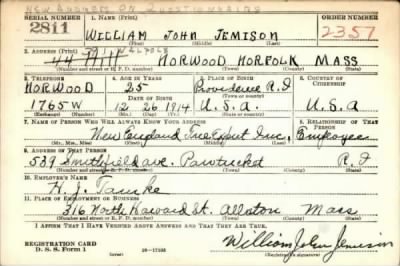 NEW ADDRESS ON QUESTIONNAIRE
SERIAL NUMBER 1. Name (Print) ORDER NUMBER
2811 WILLIAM JOHN JEMISON 2357
(First) (Middle) (Last)
2. Address (Print)
WALPOLE
44 NORWOOD NORFOLK MASS
(Number and street or R. F. D. number) (Town) (County) (State)
3. Telephone 4. Age in Years 5. Place of Birth 6. Country of Citizenship
NORWOOD 25 Providence R.I
Date of Birth (Town or county)
1765W 12 26 1914 U.S.A. U.S.A
(Exchange) (Number) (Mo.) (Day) (Yr.) (State or country)
7. Name of Person Who Will Always Know Your Address 8. Relationship of That Person
New England Tree Expert Inc., Employee
(Mr., Mrs., Miss) (First) (Middle) (Last)
9. Address of That Person
539 Smithfield ave. Pawtucket R.I
(Number and street or R. F. D. number) (Town) (County) (State)
10. Employer's Name
H. J.
11. Place of Employment or Business
316 North Harvard St. Allston Mass
(Number and street or R. F. D. number) (Town) (County) (State)
I Affirm That I Have Verified Above Answers and That They Are True.
REGISTRATION CARD
D. S. S. Form 1 (over) 16—17105 William John Jemison
(Registrant's signature)